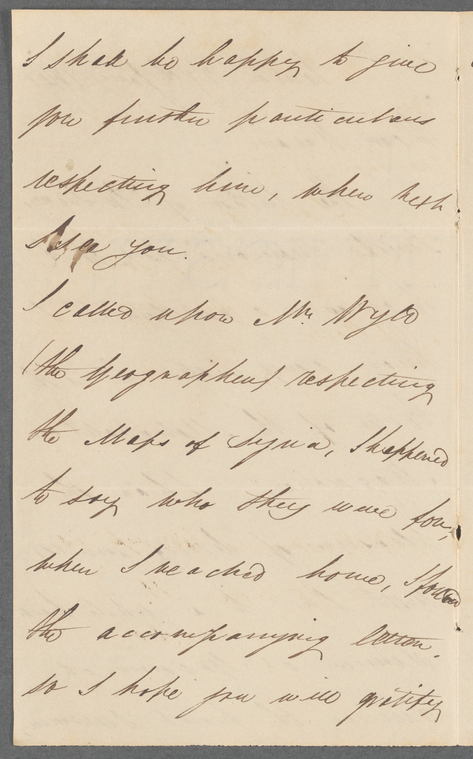 I shall be happy to give
you further particulars
respecting him, when next
I see you.
I called upon Mr. Wyld
(the Geographer) respecting
the Maps of Syria, I happened
to say who they were for,
when I reached home, I found
the accompanying letter.
so I hope you will gratify